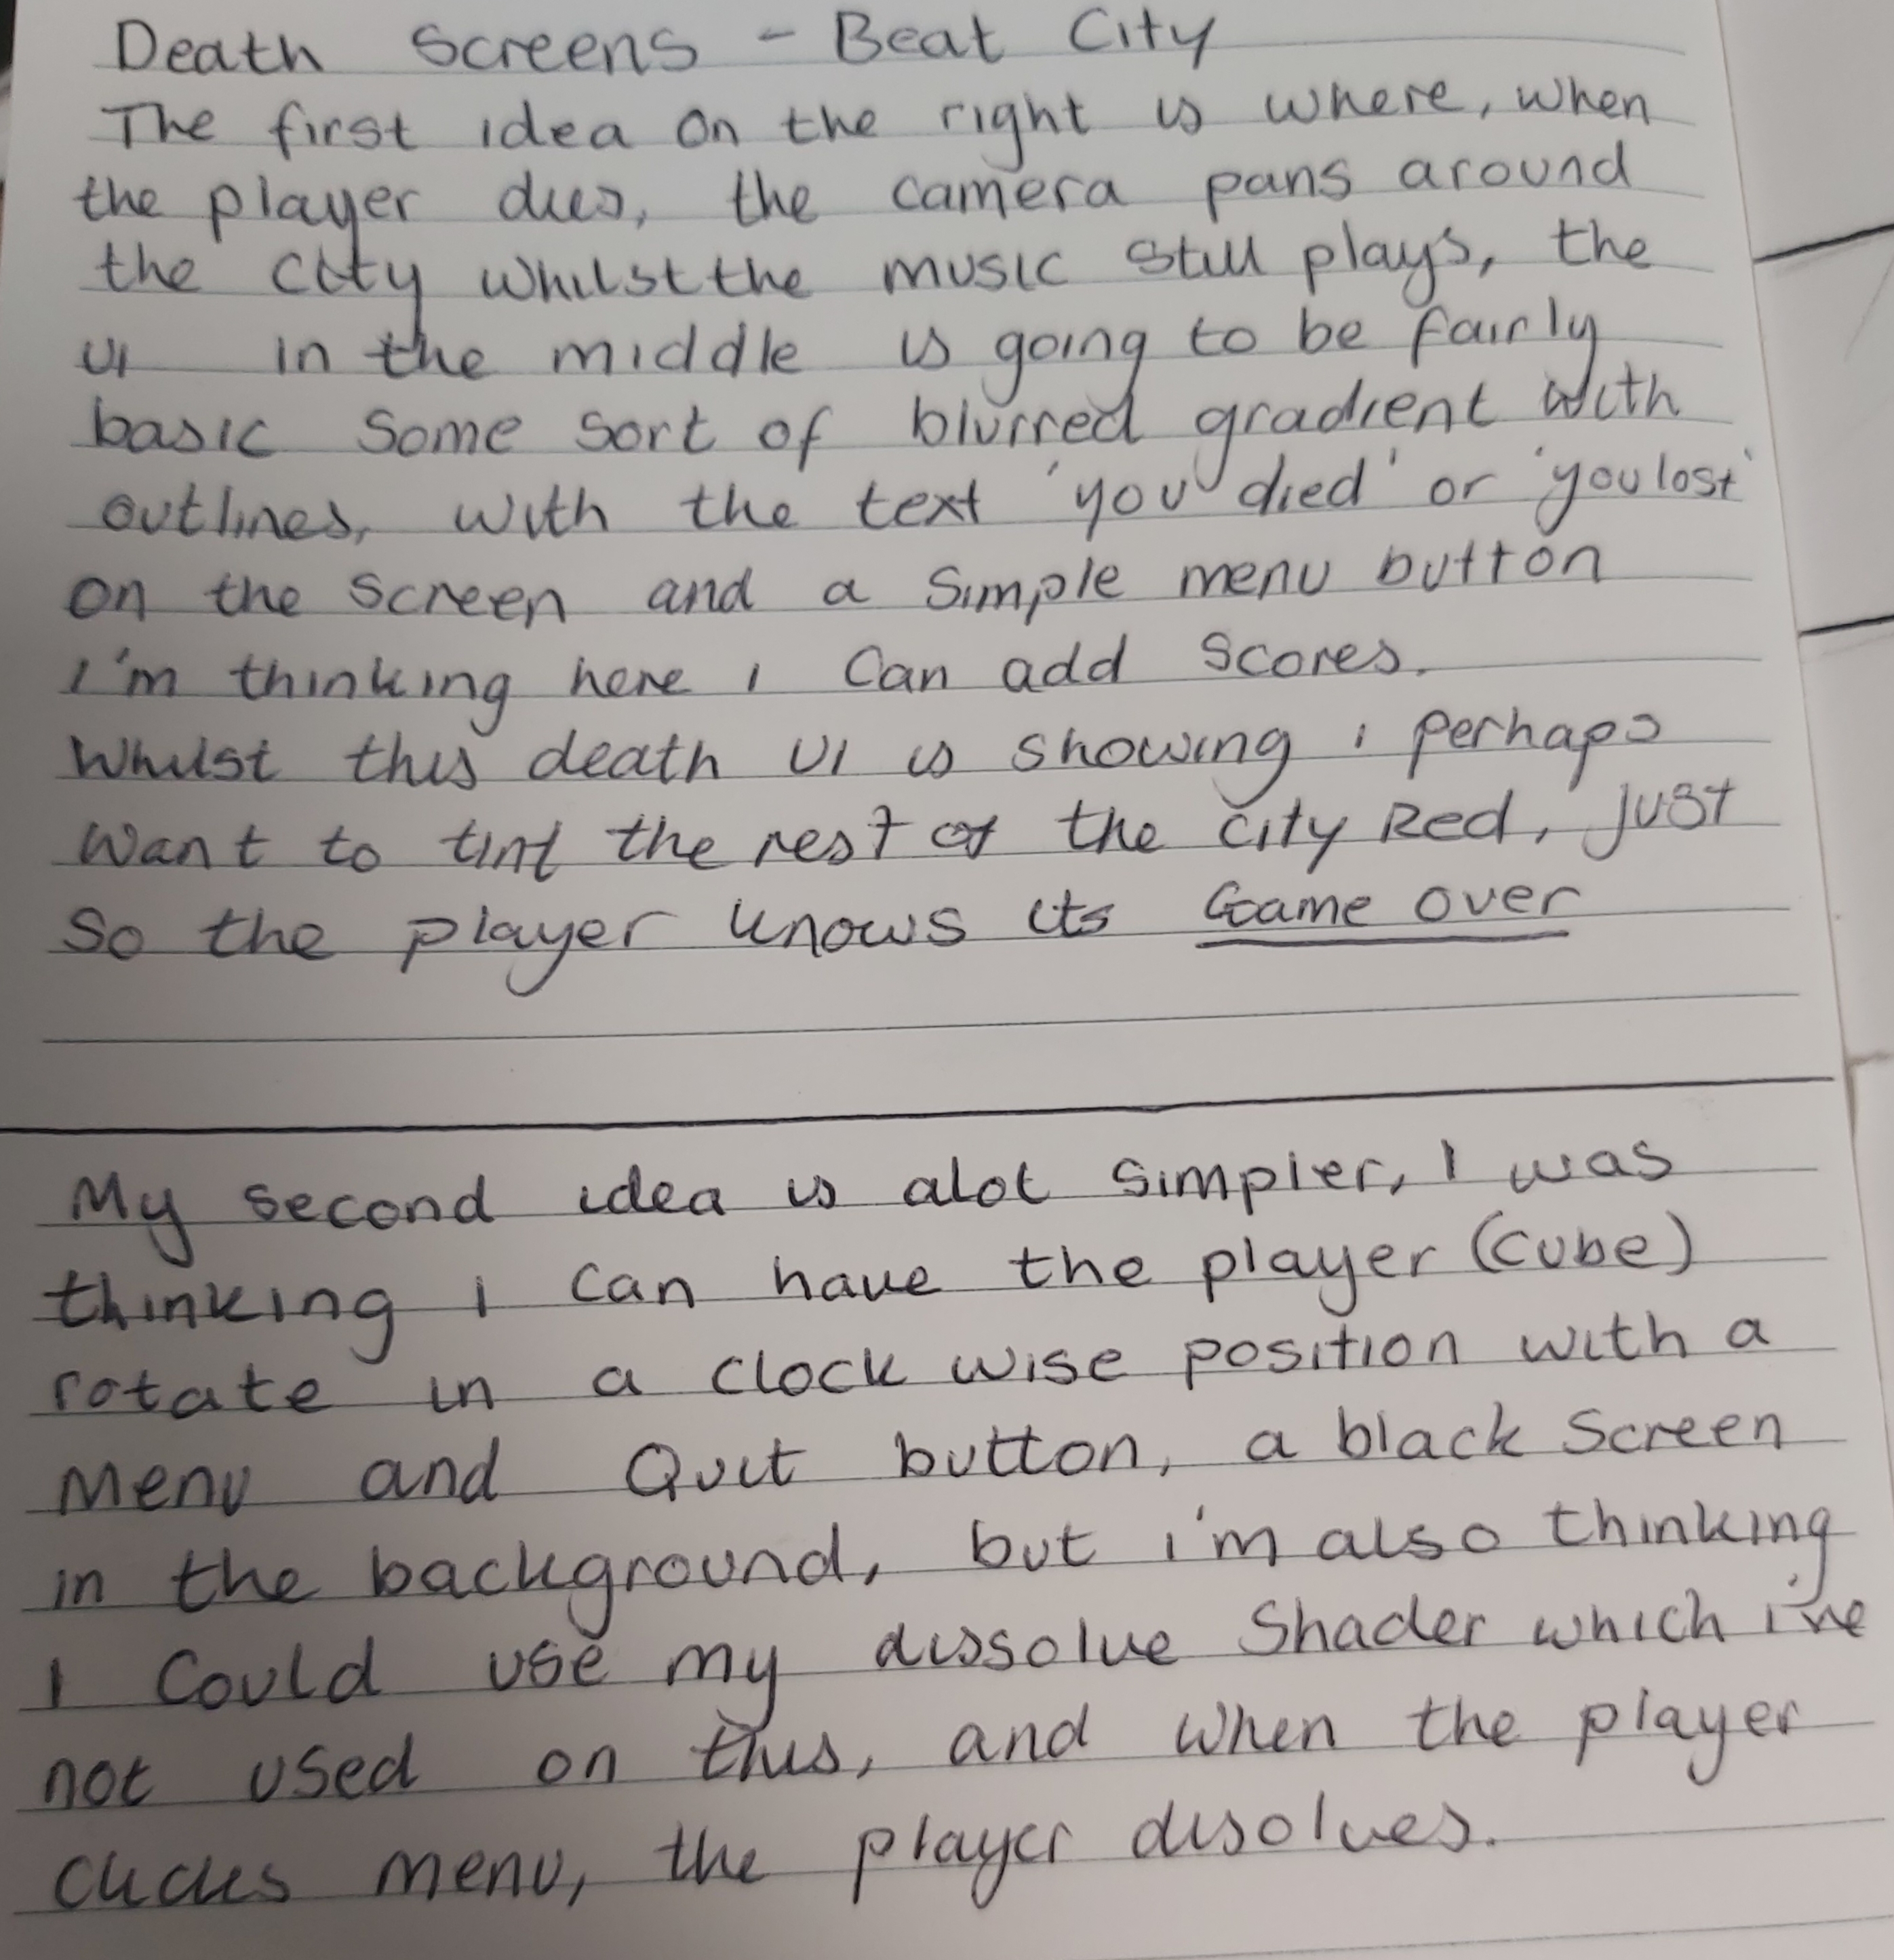 Death Screens - Beat City
The first idea on the right is where, when
the player dies, the camera pans around
the city whilst the music still plays, the
UI in the middle is going to be fairly
basic some sort of blurred gradient with
outlines, with the text 'you died' or 'you lost'
on the screen and a simple menu button
I'm thinking here i can add scores.
Whilst this death UI is showing i perhaps
want to tint the rest of the city Red, just
so the player knows its Game over
My second idea is alot simpler, I was
thinking i can have the player (cube)
rotate in a clock wise position with a
Menu and Quit button, a black screen
in the background, but i'm also thinking
I could use my dissolve shader which i've
not used on this, and when the player
clicks menu, the player disolves.